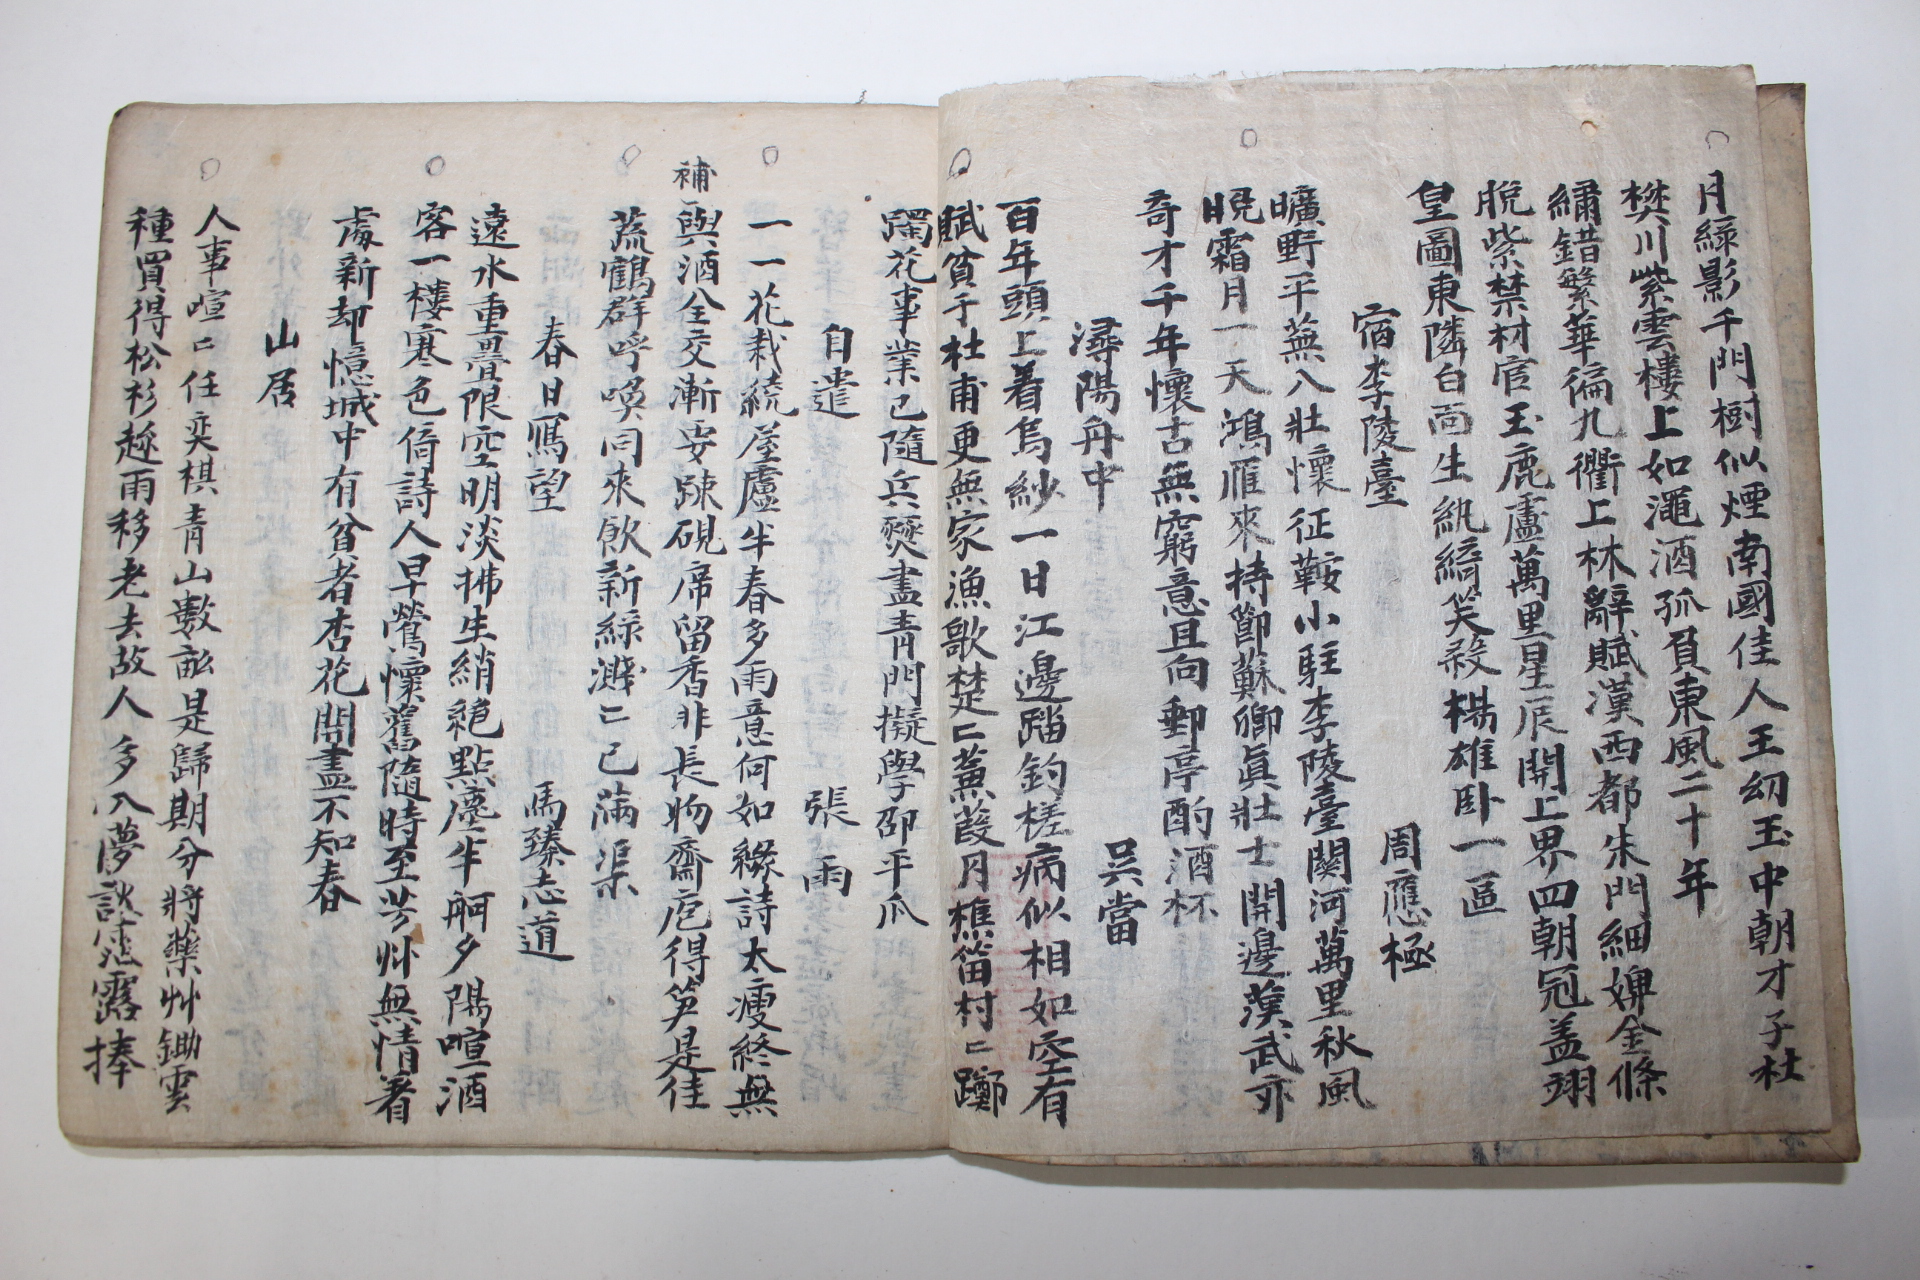 月綠影千門樹似煙南國佳人王幼玉中朝才子杜
樊川紫雲樓上如澠酒孤負東風二十年
繡錯繁華徧九衢上林辭賦漢西都朱門細婢金條
脫紫禁材官玉鹿盧萬里星辰開上界四朝冠盖翊
皇圖東隣白面生紈綺笑殺楊雄卧一區
宿李陵臺 周應極
曠野平蕪八壯懷征鞍小駐李陵臺関河萬里秋風
晚霜月一天鴻雁來持節蘇卿真壯士開邊漢武亦
奇才千年懷古無窮意且向郵亭酌酒杯
潯陽舟中 吳當
百年頭上着烏紗一日江邊踏釣槎病似相如空有
賦貧于杜甫更無家漁歌楚〻蒹葭月樵笛村〻躑
躅花事業已隨兵燹盡青門擬學邵平瓜
自遣 張雨
一一花栽繞屋廬半春多雨意何如緣詩太瘦終無
補
與酒全交漸安踈硯席留香非長物齋庖得笋是佳
蔬鶴群呼喚同來飲新綠濺〻已滿渠
春日寫望 馬臻志道
遠水重疊限空明淡拂生綃絕點塵半舸夕陽喧酒
客一樓寒色倚詩人早鶯懷舊隨時至芳艸無情著
處新却憶城中有貧者杏花開盡不知春
山居
人事喧〻任奕棋青山數畝是歸期分將藥艸鋤雲
種買得松杉趁雨移老去故人多入夢談空露捧